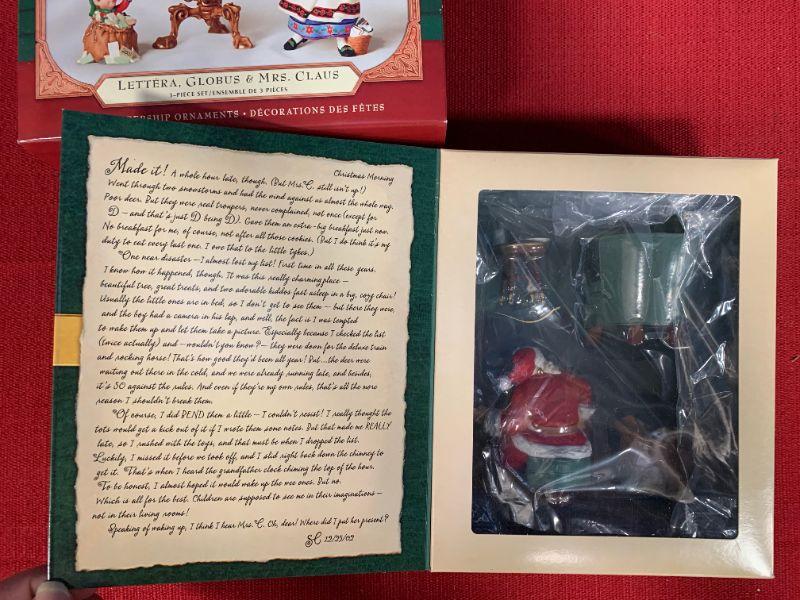 LETTÉRA, GLOBUS & MRS. CLAUS
3-PIECE SET/ENSEMBLE DE 3 PIÈCES
ERSHIP ORNAMENTS • DÉCORATIONS DES FÊTES
Christmas Morning
Made it! A whole hour late, though. (But Mrs. C. still isn't up!)
Went through two snowstorms and had the wind against us almost the whole way.
Poor deer. But they were real troupers, never complained, not once (except for
D — and that's just D being D). Gave them an extra-big breakfast just now.
No breakfast for me, of course, not after all those cookies. (But I do think it's my
duty to eat every last one. I owe that to the little tykes.)
One near disaster — I almost lost my list! First time in all these years.
I know how it happened, though. It was this really charming place —
beautiful tree, great treats, and two adorable kiddos fast asleep in a big, cozy chair!
Usually the little ones are in bed, so I don't get to see them — but there they were,
and the boy had a camera in his lap, and well, the fact is I was tempted
to wake them up and let them take a picture. Especially because I checked the list
(twice actually) and — wouldn't you know? — they were down for the deluxe train
and rocking horse! That's how good they'd been all year! But...the deer were
waiting out there in the cold, and we were already running late, and besides,
it's SO against the rules. And even if they're my own rules, that's all the more
reason I shouldn't break them.
Of course, I did BEND them a little — I couldn't resist! I really thought the
tots would get a kick out of it if I wrote them some notes. But that made me REALLY
late, so I rushed with the toys, and that must be when I dropped the list.
Luckily, I missed it before we took off, and I slid right back down the chimney to
get it. That's when I heard the grandfather clock chiming the top of the hour.
To be honest, I almost hoped it would wake up the wee ones. But no.
Which is all for the best. Children are supposed to see me in their imaginations —
not in their living rooms!
Speaking of waking up, I think I hear Mrs. C. Oh, dear! Where did I put her present?
SC 12/25/02